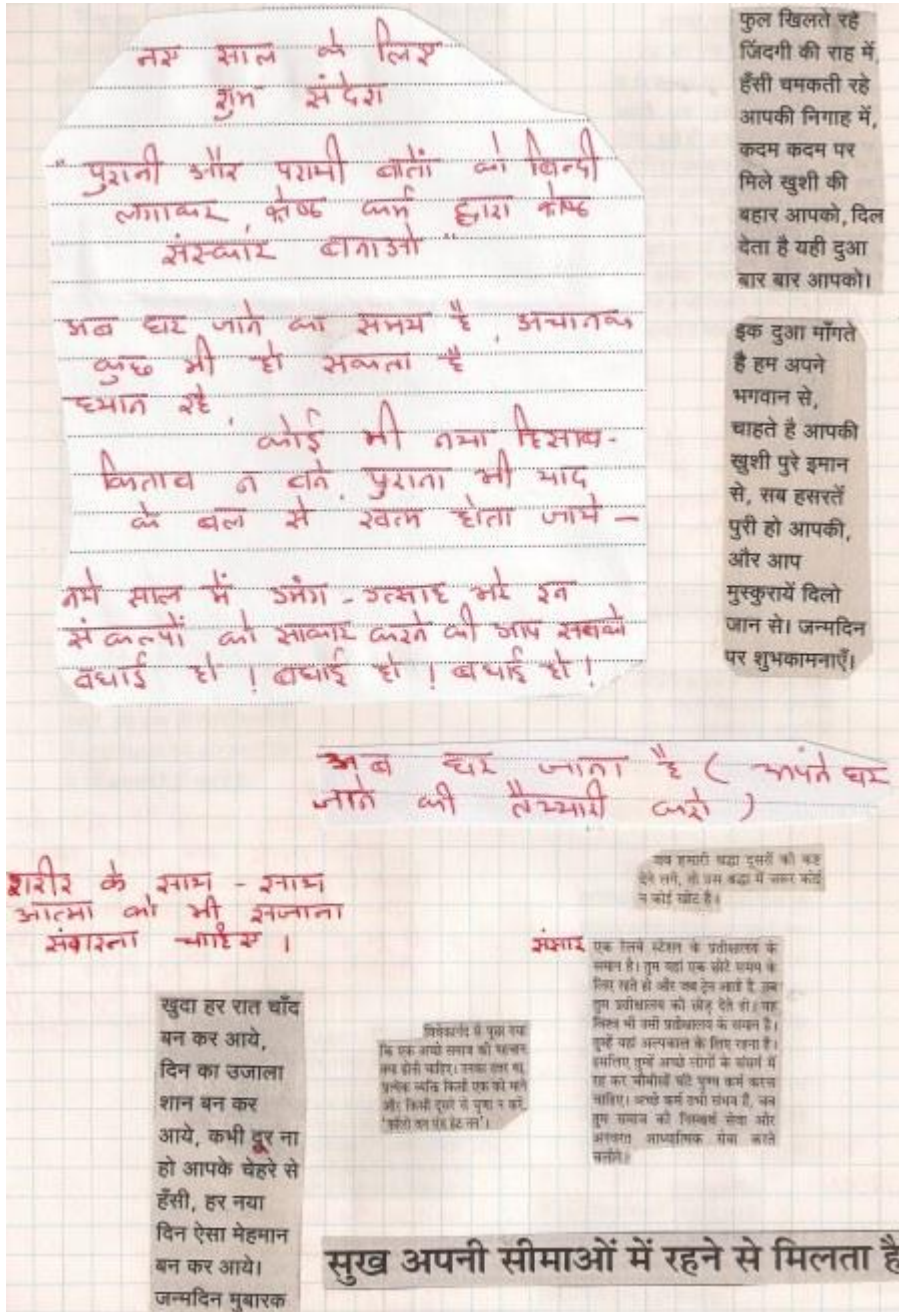 नए साल के लिए
शुभ संदेश
"पुरानी और परायी बातों को बिन्दी
लगाकर, श्रेष्ठ कर्म द्वारा श्रेष्ठ
संस्कार बनाओ"
अब घर जाने का समय है, अचानक
कुछ भी हो सकता है
ध्यान रहे,
कोई भी नया हिसाब-
किताब न बने, पुराना भी याद
के बल से खत्म होता जाये –
नये साल में उमंग - उत्साह भरे इन
संकल्पों को साकार करने की आप सबको
बधाई हो ! बधाई हो ! बधाई हो !
फुल खिलते रहे
जिंदगी की राह में,
हँसी चमकती रहे
आपकी निगाह में,
कदम कदम पर
मिले खुशी की
बहार आपको, दिल
देता है यही दुआ
बार बार आपको।
इक दुआ माँगते
है हम अपने
भगवान से,
चाहते है आपकी
खुशी पुरे इमान
से, सब हसरतें
पुरी हो आपकी,
और आप
मुस्कुरायें दिलो
जान से। जन्मदिन
पर शुभकामनाएँ।
अब घर जाना है ( अपने घर
जाने की तैय्यारी करो )
शरीर के साथ - साथ
आत्मा को भी सजाना
संवारना चाहिए ।
जब हमारी श्रद्धा दूसरों को कष्ट
देने लगे, तो उस श्रद्धा में जरूर कोई
न कोई खोट है।
संसार एक रेलवे स्टेशन के प्रतीक्षालय के
समान है। तुम यहां एक छोटे समय के
लिए रहते हो और जब ट्रेन आती है, तब
तुम प्रतीक्षालय को छोड़ देते हो। यह
विश्व भी उसी प्रतीक्षालय के समान है।
तुम्हें यहां अल्पकाल के लिए रहना है।
इसलिए तुम्हें अच्छे लोगों के संसर्ग में
रह कर चौबीसों घंटे पुण्य कर्म करना
चाहिए। अच्छे कर्म तभी संभव हैं, जब
तुम समाज की निस्वार्थ सेवा और
अनवरत आध्यात्मिक सेवा करते
चलोगे।
विवेकानंद से पूछा गया
कि एक अच्छे समाज की पहचान
क्या होनी चाहिए। उनका उत्तर था,
प्रत्येक व्यक्ति किसी एक को माने
और किसी दूसरे से घृणा न करे,
खुदा हर रात चाँद
बन कर आये,
दिन का उजाला
शान बन कर
आये, कभी दूर ना
हो आपके चेहरे से
हँसी, हर नया
दिन ऐसा मेहमान
बन कर आये।
जन्मदिन मुबारक
सुख अपनी सीमाओं में रहने से मिलता है